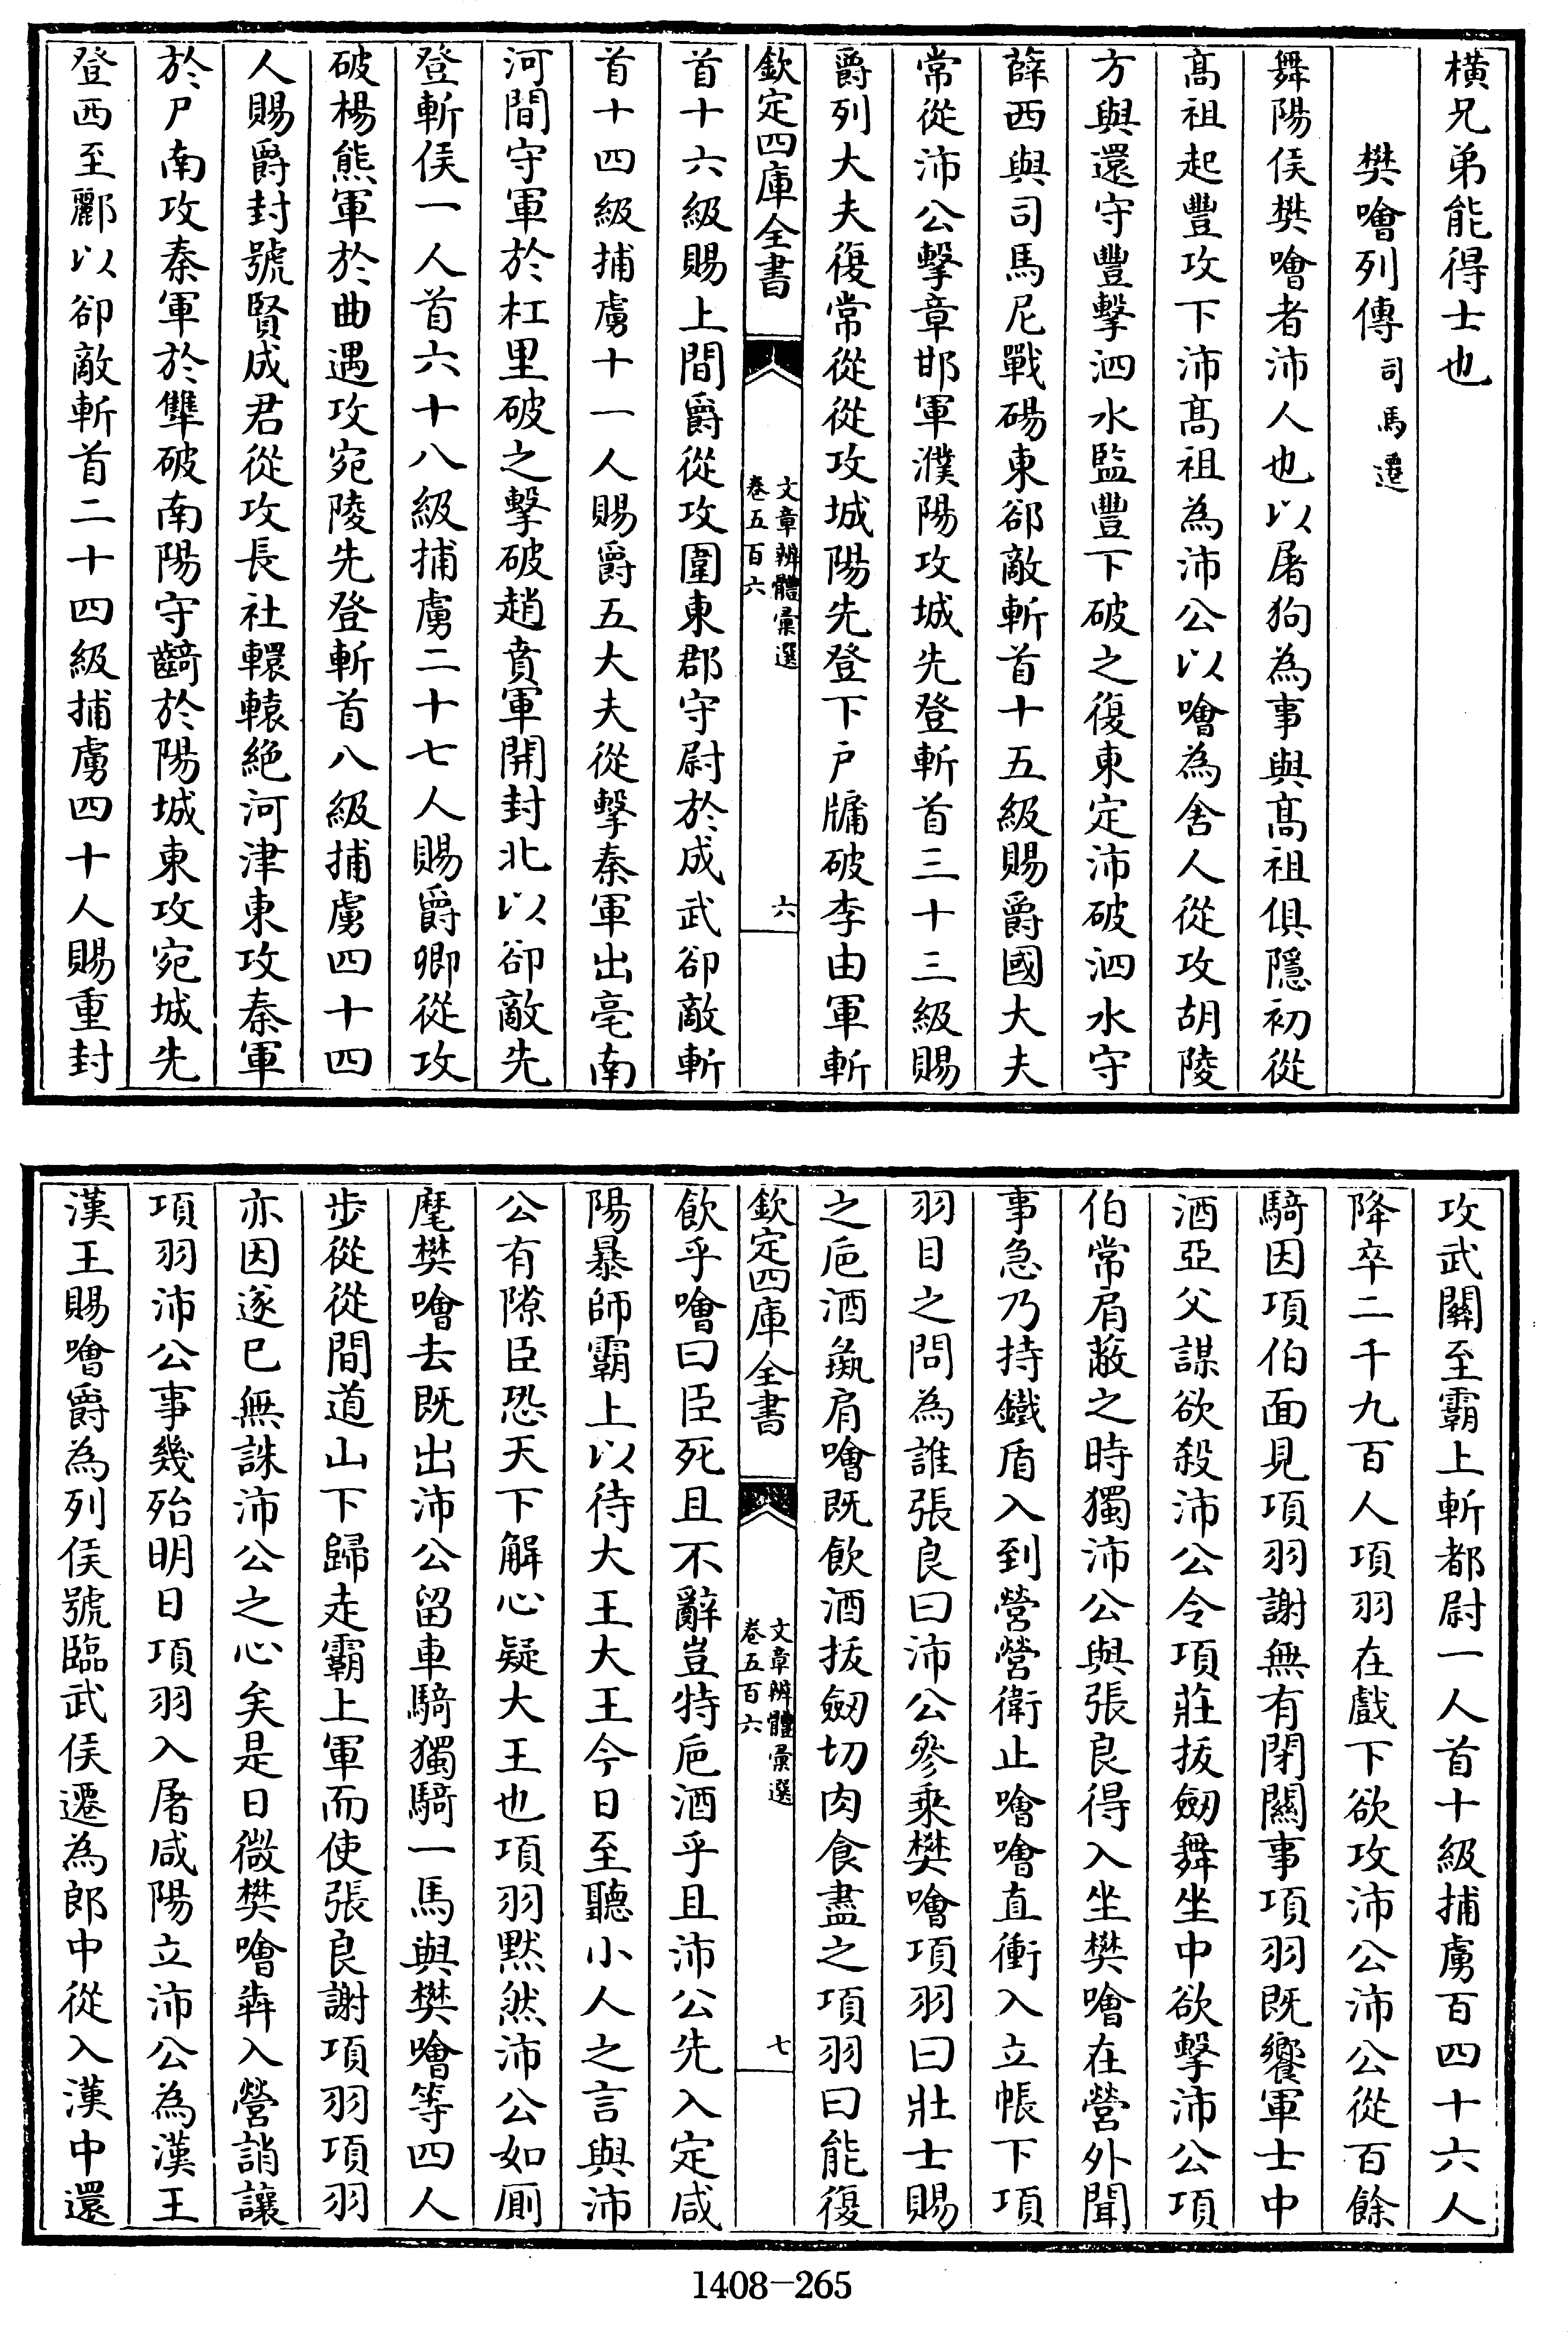 橫兄弟能得士也
樊噲列傳 司馬遷
舞陽侯樊噲者沛人也以屠狗為事與髙祖俱隱初從
髙祖起豐攻下沛髙祖為沛公以噲為舍人從攻胡陵
方與還守豐擊泗水監豐下破之復東定沛破泗水守
薛西與司馬尼戰碭東郤敵斬首十五級賜爵國大夫
常從沛公擊章邯軍濮陽攻城先登斬首三十三級賜
爵列大夫復常從從攻城陽先登下户牖破李由軍斬
欽定四庫全書
文章辨體彙選
卷五百六
六
首十六級賜上間爵從攻圍東郡守尉於成武卻敵斬
首十四級捕虜十一人賜爵五大夫從擊秦軍出亳南
河間守軍於杠里破之擊破趙賁軍開封北以卻敵先
登斬侯一人首六十八級捕虜二十七人賜爵卿從攻
破楊熊軍於曲遇攻宛陵先登斬首八級捕虜四十四
人賜爵封號賢成君從攻長社轘轅絶河津東攻秦軍
於尸南攻秦軍於犨破南陽守齮於陽城東攻宛城先
登西至酈以卻敵斬首二十四級捕虜四十人賜重封
攻武關至霸上斬都尉一人首十級捕虜百四十六人
降卒二千九百人項羽在戲下欲攻沛公沛公從百餘
騎因項伯面見項羽謝無有閉闗事項羽既饗軍士中
酒亞父謀欲殺沛公令項莊拔劒舞坐中欲擊沛公項
伯常肩蔽之時獨沛公與張良得入坐樊噲在營外聞
事急乃持鐵盾入到營營衛止噲噲直衝入立帳下項
羽目之問為誰張良曰沛公參乘樊噲項羽曰壯士賜
之巵酒彘肩噲既飲酒拔劒切肉食盡之項羽曰能復
欽定四庫全書
文章辨體彙選
卷五百六
七
飲乎噲曰臣死且不辭豈特巵酒乎且沛公先入定咸
陽暴師霸上以待大王大王今日至聽小人之言與沛
公有隙臣恐天下解心疑大王也項羽默然沛公如厠
麾樊噲去既出沛公留車騎獨騎一馬與樊噲等四人
步從從間道山下歸走霸上軍而使張良謝項羽項羽
亦因遂已無誅沛公之心矣是日微樊噲犇入營誚讓
項羽沛公事幾殆明日項羽入屠咸陽立沛公為漢王
漢王賜噲爵為列侯號臨武侯遷為郎中從入漢中還
1408-265